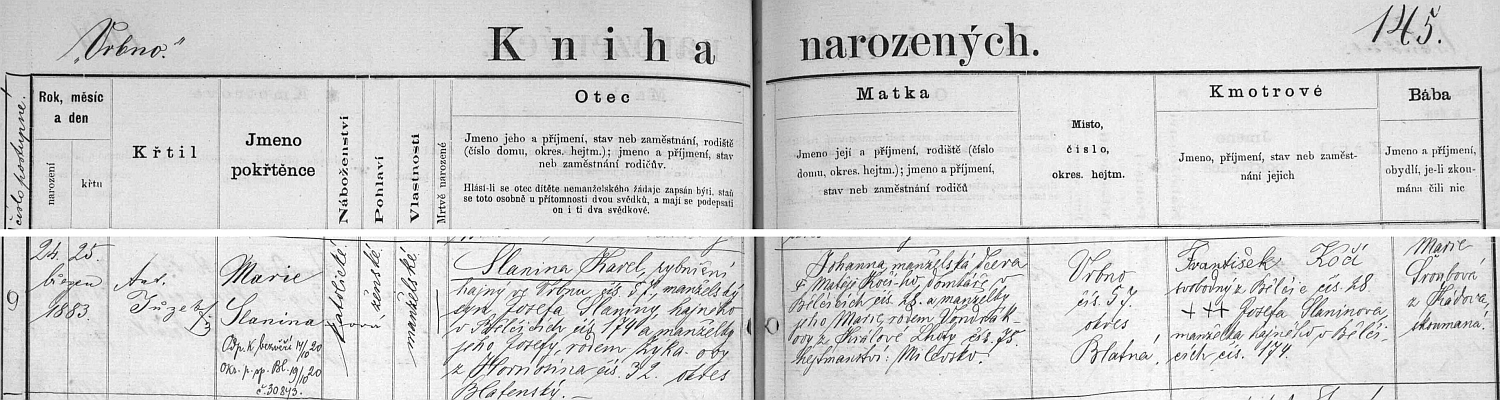 "Vrbno."
Kniha narozených.
145.
číslo postupné.
Rok, měsíc
a den
narození
křtu
Křtil
Jmeno
pokřtěnce
Náboženství
Pohlaví
Vlastnosti
Mrtvě narozené
Otec
Jmeno jeho a příjmení, stav neb zaměstnání, rodiště
(číslo domu, okres. hejtm.); jmeno a příjmení, stav
neb zaměstnání rodičův.
Hlásí-li se otec dítěte nemanželského žádaje zapsán býti, staň
se toto osobně u přítomnosti dvou svědků, a mají se podepsati
on i ti dva svědkové.
Matka
Jmeno její a příjmení, rodiště (číslo
domu, okres. hejtm.); jmeno a příjmení,
stav neb zaměstnání rodičů
Místo,
číslo,
okres. hejtm.
Kmotrové
Jmeno, příjmení, stav neb zaměst-
nání jejich
Bába
Jmeno a příjmení,
obydlí, je-li zkou-
mána čili nic
9
24. 25.
březen
1883.
Ant.
Marie
Slanina
-ová
Odp. k bezvěří 14/10 20
Okr. p. sp. Bl. 19/10 20
č. 30843.
katolické.
ženské.
manželské
Slanina Karel, rybniční
hajný ve Vrbnu čís. 57, manželský
syn Josefa Slaniny, hajného
v Bělčicích čís. 174 a manželky
jeho Josefy, rodem
z čís. 32. okres
Blatenský.
Johanna, manželská dcera
† Matěje Kočího, domkáře
Bělčicích čís. 28. a manželky
jeho Marie, rodem Vondrák-
ovy z Králové Lhoty čís. 75.
hejtmanství: Milevsko.
Vrbno
čís. 57.
okres
Blatná.
František Kočí
svobodný z Bělčic čís. 28.
+++ Josefa Slaninova,
manželka hajného v Bělči-
cích čís. 174.
Marie
Troubová
z Kadova,
zkoumaná.